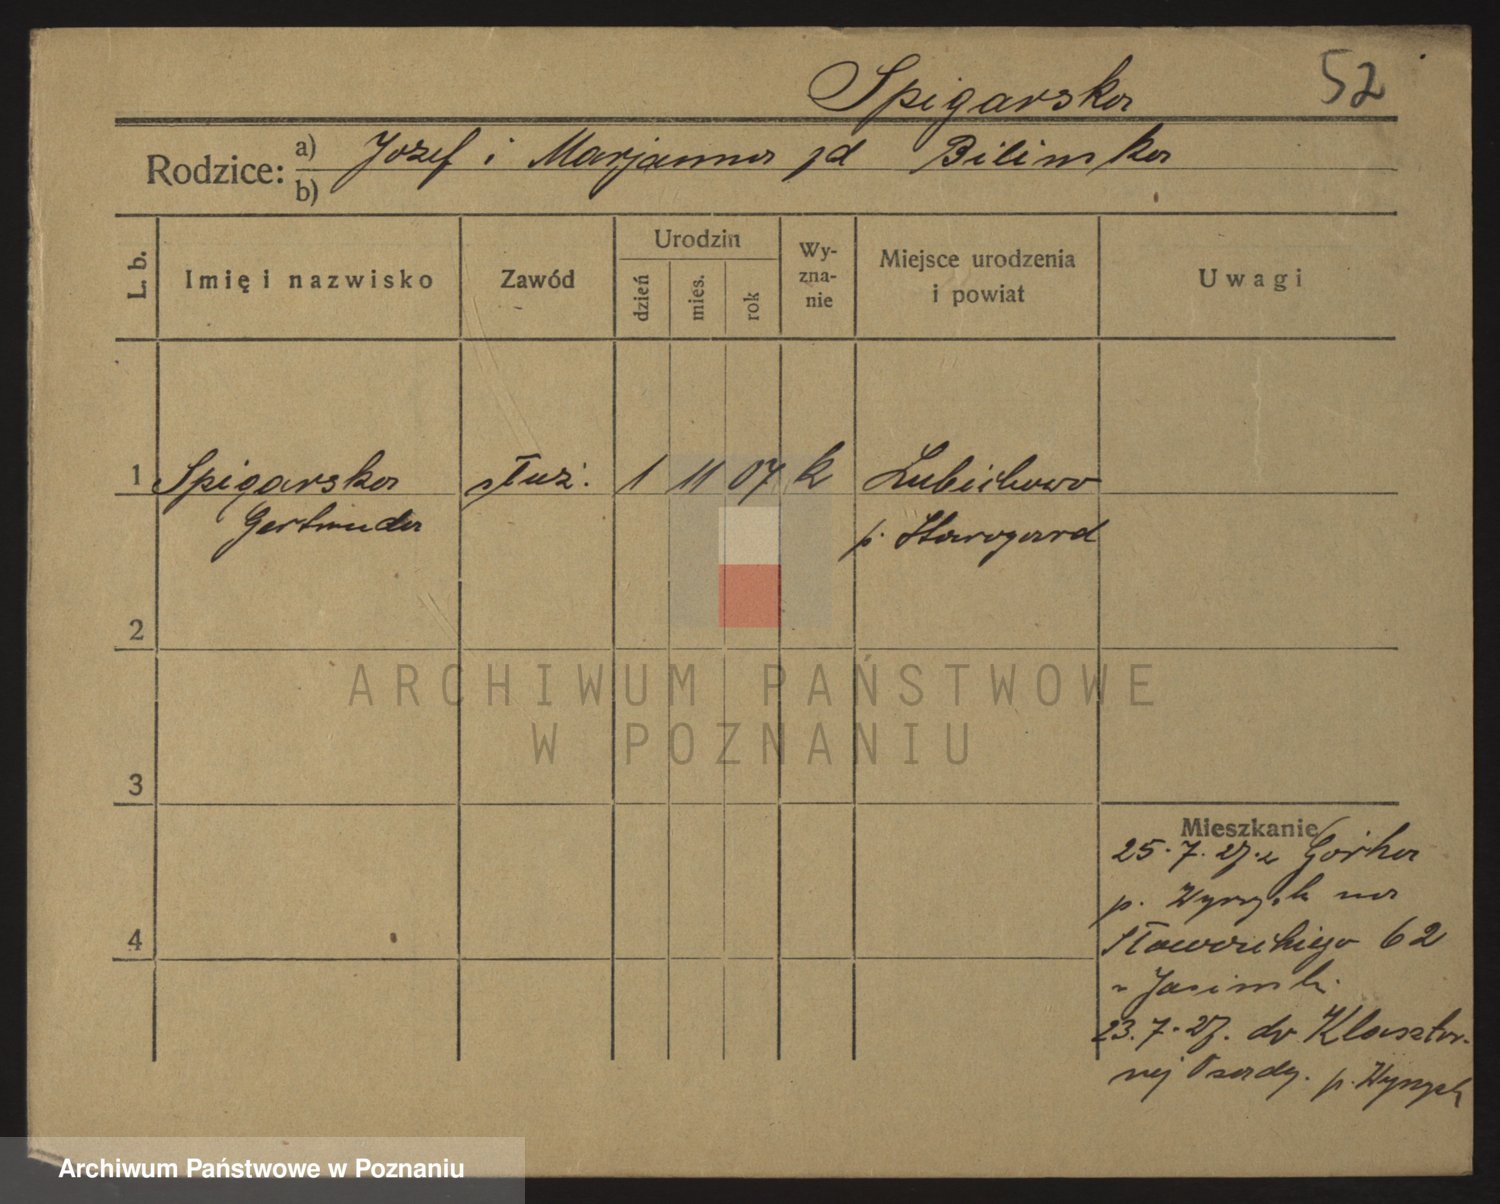 Spigarska 52
Rodzice: a) Jozef i Marjanna zd Bilinska
b)
L. b. Imię i nazwisko Zawód Urodzin dzień mies. rok Wy-zna-nie Miejsce urodzenia i powiat Uwagi
1 Spigarska służ. 1 11 07 k Lubichowo
Gertruda p. Starogard
2
3
4
Mieszkanie
25.7.27. z Górka
p. Wyrzysk na
62
23.7.27. do Klasztor-
nej Osady. p. Wyrzysk
ARCHIWUM PAŃSTWOWE
W POZNANIU
Archiwum Państwowe w Poznaniu